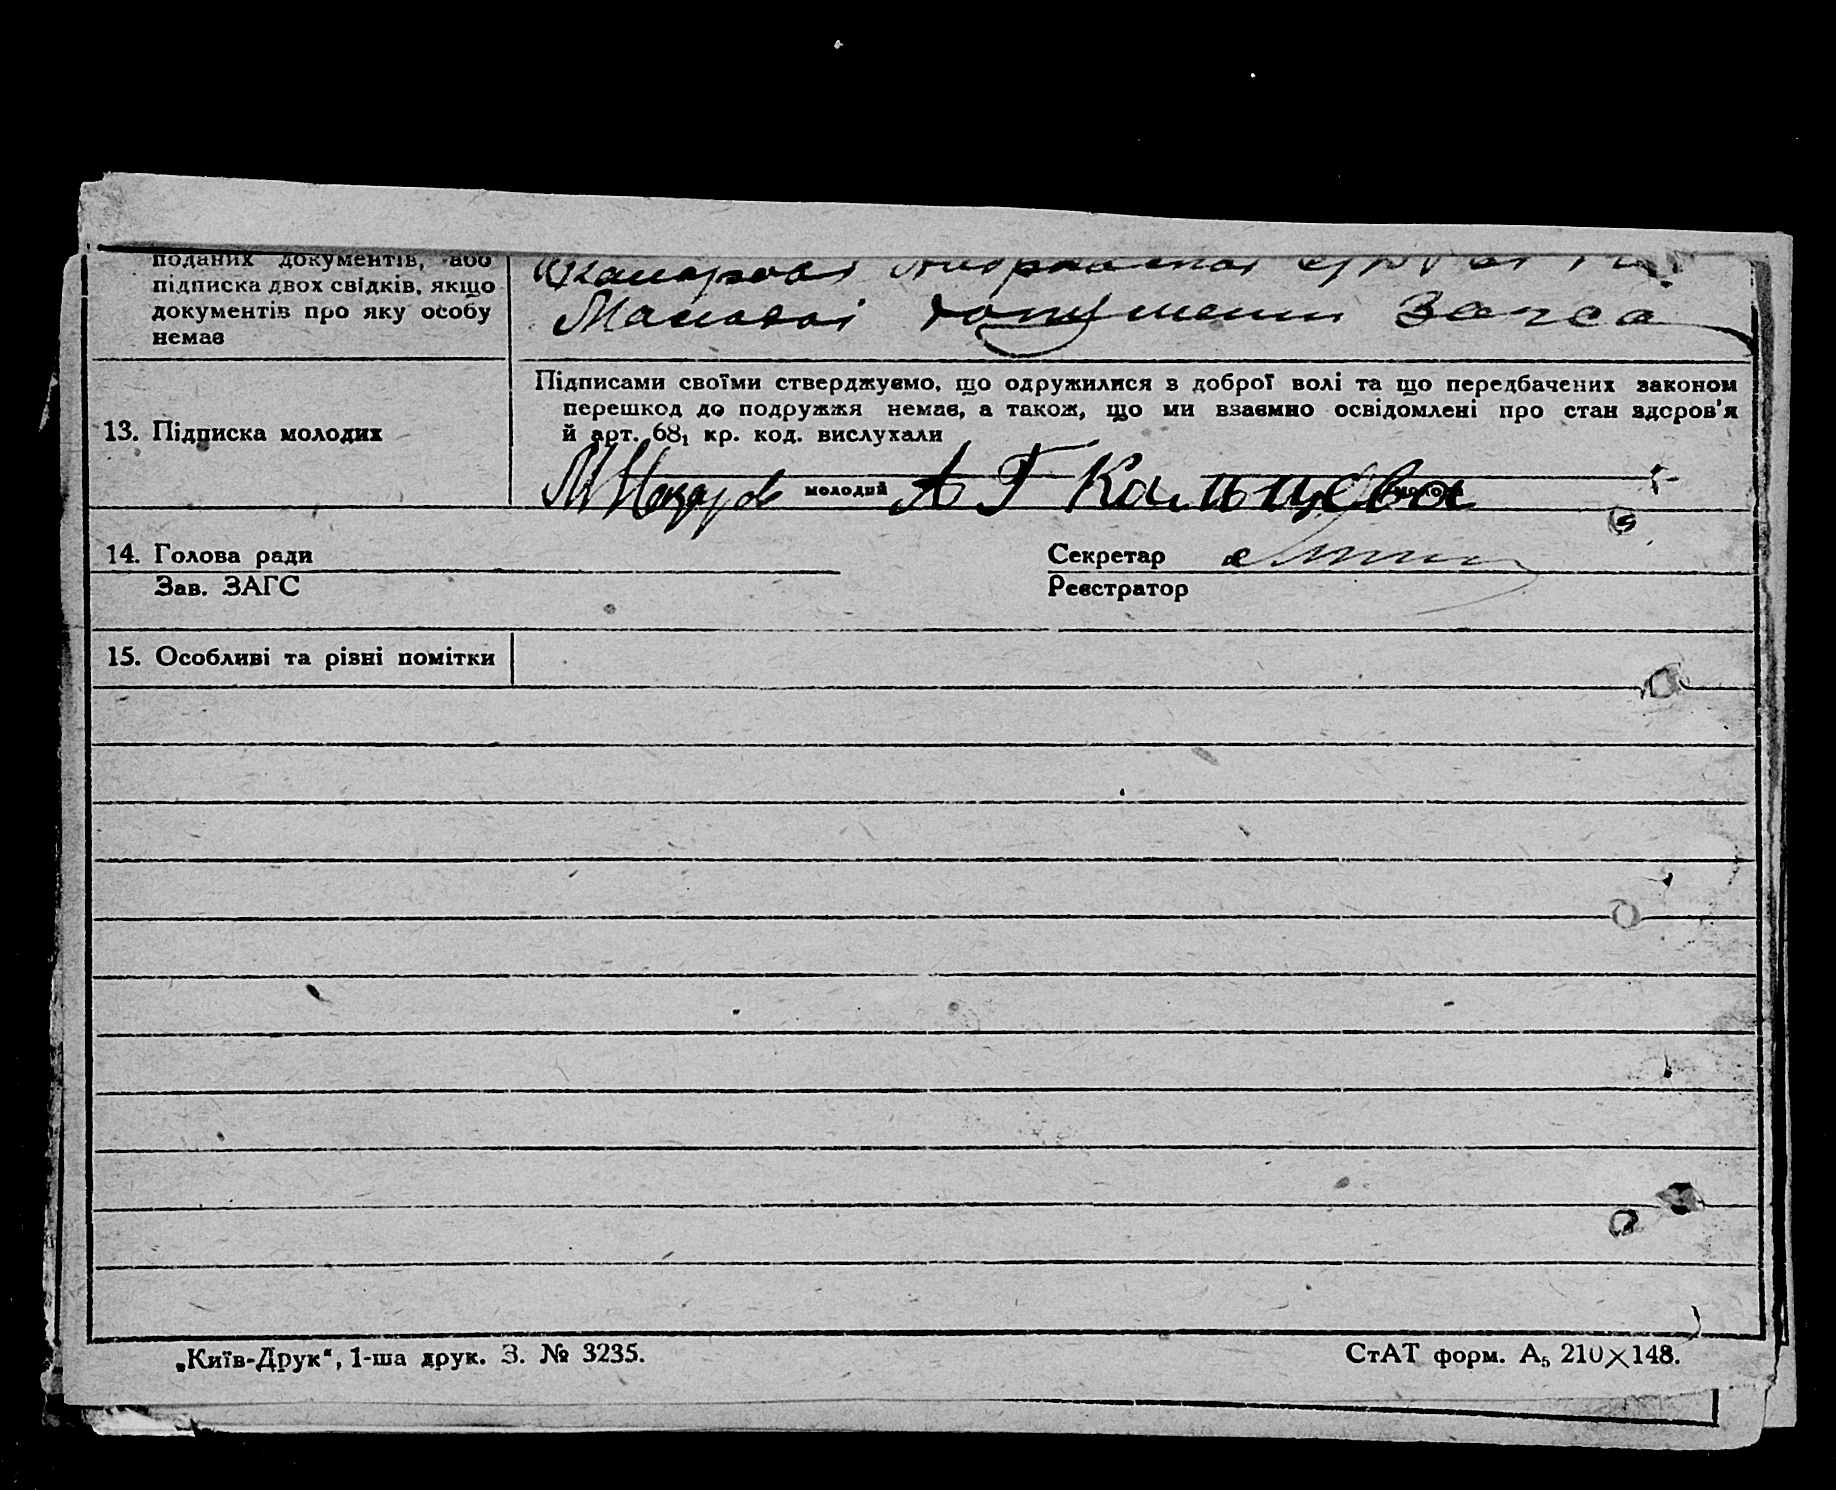 поданих документів, або
підписка двох свідків, якщо
документів про яку особу
немає
Загса
Підписами своїми стверджуємо, що одружилися з доброї волі та що передбачених законом
перешкод до подружжя немає, а також, що ми взаємно освідомлені про стан здоров'я
й арт. 68₁ кр. код. вислухали
13. Підписка молодих
молодий А Г Кальцева
14. Голова ради
Секретар
Зав. ЗАГС
Реєстратор
15. Особливі та різні помітки
„Київ-Друк“, 1-ша друк. З. № 3235.
СтАТ форм. А₅ 210×148.